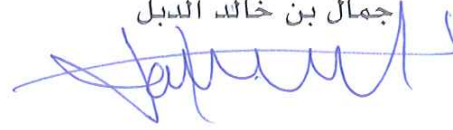 جمال بن خالد الدبل